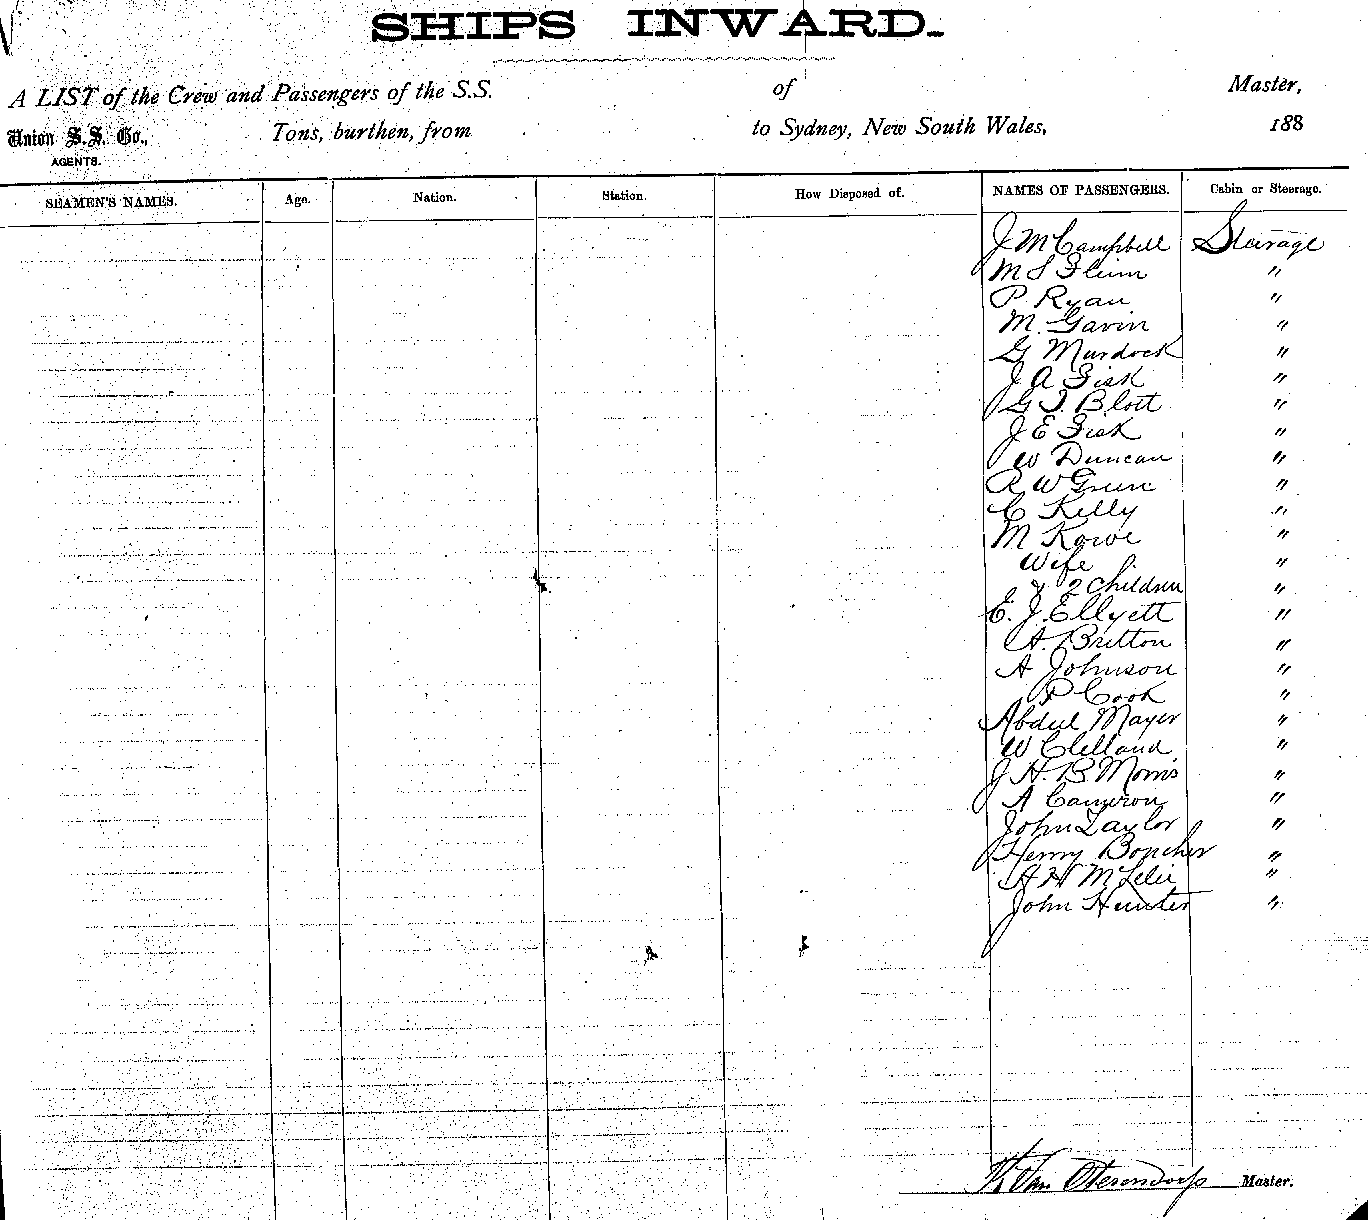 SHIPS INWARD.
A LIST of the Crew and Passengers of the S.S. of Master,
Union S.S. Co., Tons, burthen, from to Sydney, New South Wales, 188
AGENTS.
SEAMEN'S NAMES. Age. Nation. Station. How Disposed of. NAMES OF PASSENGERS. Cabin or Steerage.
J McCampbell Steerage
M S "
P. Ryan "
M. Gavin "
G Murdock "
J A Fisk "
G T. Blott "
J E Fisk "
W Duncan "
R W Green "
C Kelly "
M Rowe "
Wife "
& 2 Children "
E. J. Ellyett "
A. Britton "
A Johnson "
P Cook "
Abdul Mayer "
W Clelland "
J H. B. Morris "
A Cameron "
John Taylor "
Henry "
A H "
John Hunter "
Van Master.